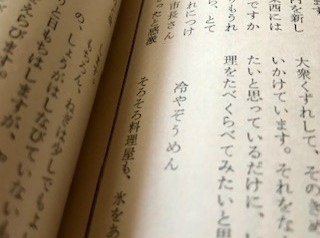 内を新し
東西には
ですか
りもうれ
ら、とて
れにつけ
市長さん
ったと感激
大衆くずれして、そのきめ
いかけています。それをな
たいと思っているだけに、い
理をたべくらべてみたいと思
冷やぞうめん
そろそろ料理屋も、氷をあ
します。
もちろん、ねぎは少しでもよ
の、しょうがはしなびていないも
日もちはしますが、
えらびます。